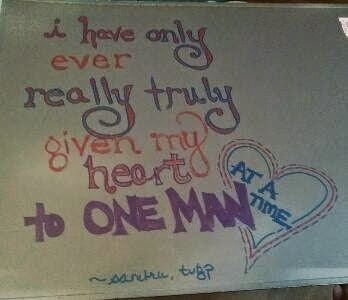 i have only
ever
really truly
given my
heart
to ONE MAN
AT A
TIME